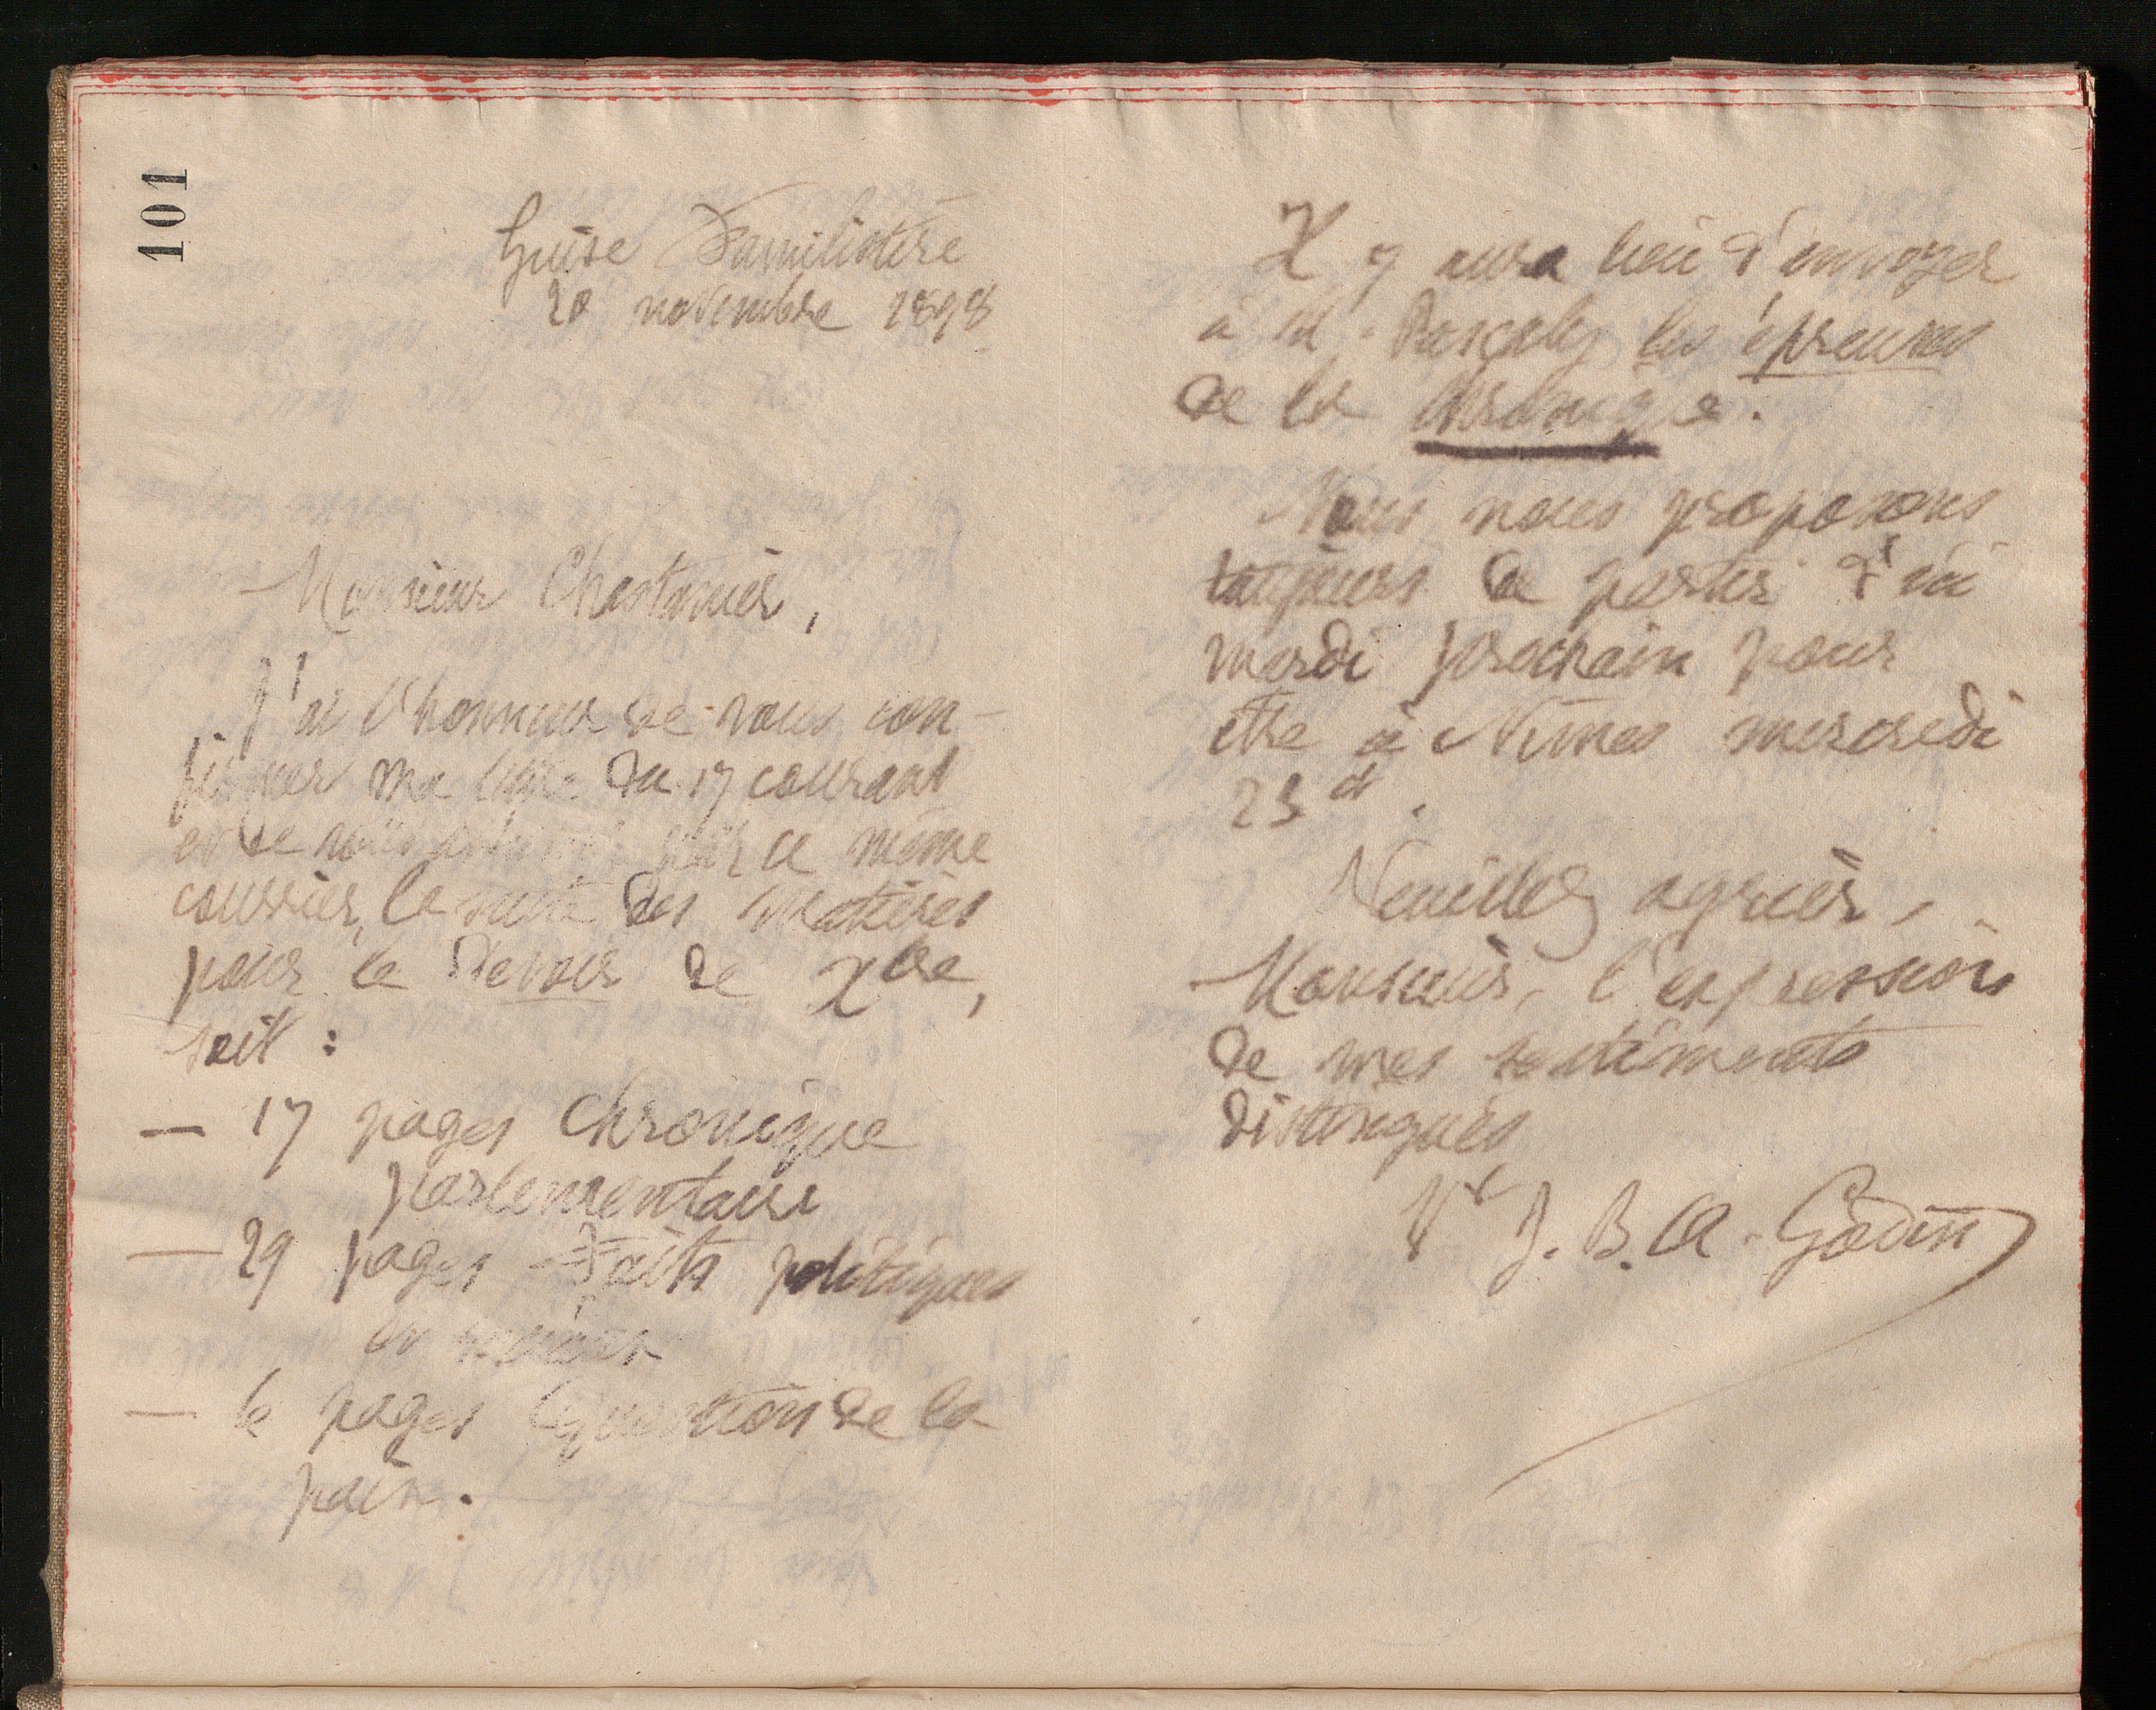 101
Guise Familistère
20 novembre 1898
Monsieur Chastanier,
J'ai l'honneur de vous con-
firmer ma lettre du 17 courant
et de vous par ce même
courrier, la suite des matières
pour le Devoir de Xbre,
soit :
— 17 pages Chronique
parlementaire
— 29 pages Faits politiques
et sociaux
— 6 pages Question de la
paix.
Il y aura lieu d'envoyer
à M. Pascaly les épreuves
de la Chronique.
Nous nous proposons
toujours de partir d'ici
mardi prochain pour
être à Nîmes mercredi
23 ct.
Veuillez agréer,
Monsieur, l'expression
de mes sentiments
distingués
Ve J. B. A. Godin